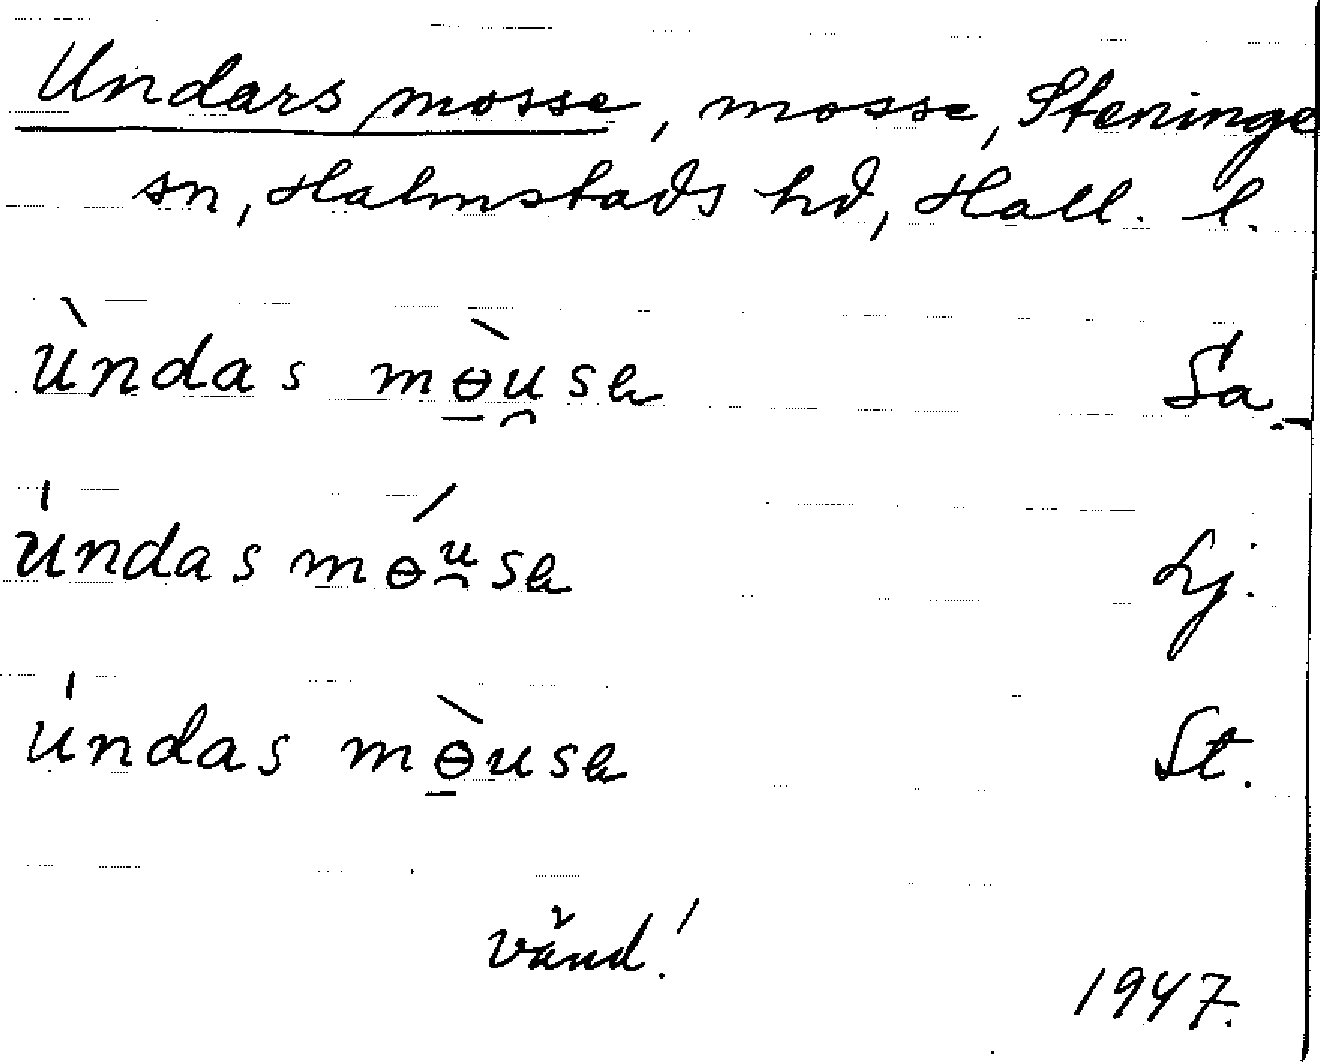 Undars mosse, mosse, Steninge
sn, Halmstads hd, Hall. l.
ùndas mɵ̱̀u̯sɐ Sa.
úndas mɵ́u̯sɐ Lj.
úndas mɵ̱̀usɐ St.
vänd!
1947.